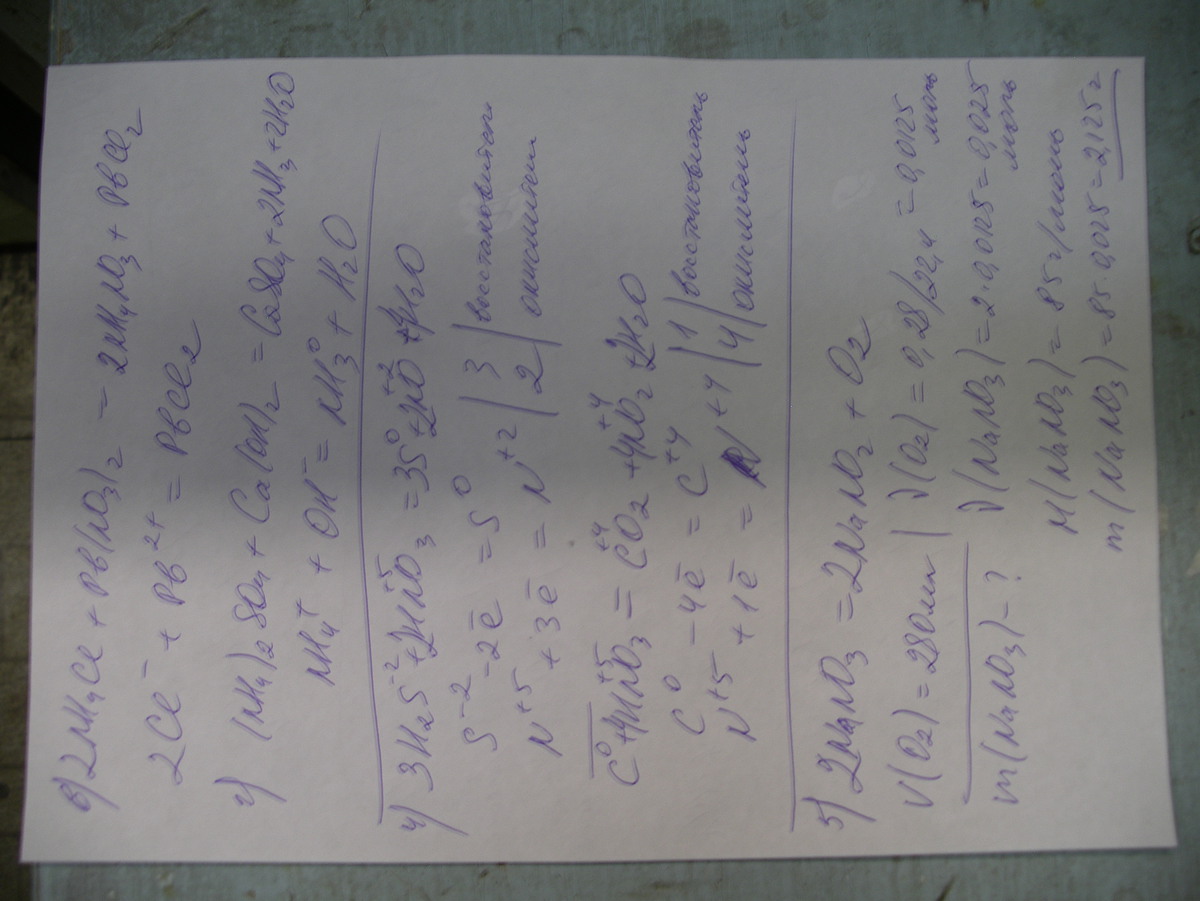 в) 2NH₄Cl + Pb(NO₃)₂ – 2NH₄NO₃ + PbCl₂
2Cl⁻ + Pb²⁺ = PbCl₂
г) (NH₄)₂SO₄ + Ca(OH)₂ = CaSO₄ + 2NH₃ + 2H₂O
NH₄⁺ + OH⁻ = NH₃⁰ + H₂O
4) 3H₂S⁻² + 2HN⁺⁵O₃ = 3S⁰ + 2N⁺²O + 4H₂O
S⁻² - 2ē = S⁰ | 3 | восстановител
N⁺⁵ + 3ē = N⁺² | 2 | окислители
C⁰ + 4HN⁺⁵O₃ = C⁺⁴O₂ + 4N⁺⁴O₂ + 2H₂O
C⁰ - 4ē = C⁺⁴ | 1 | восстановитель
N⁺⁵ + 1ē = N⁺⁴ | 4 | окислитель
5) 2NaNO₃ = 2NaNO₂ + O₂
V(O₂) = 280мл | ν(O₂) = 0,28/22,4 = 0,0125 моль
m(NaNO₃) - ? ν(NaNO₃) = 2·0,0125 = 0,025 моль
M(NaNO₃) = 85 г/моль
m(NaNO₃) = 85·0,025 = 2,125 г